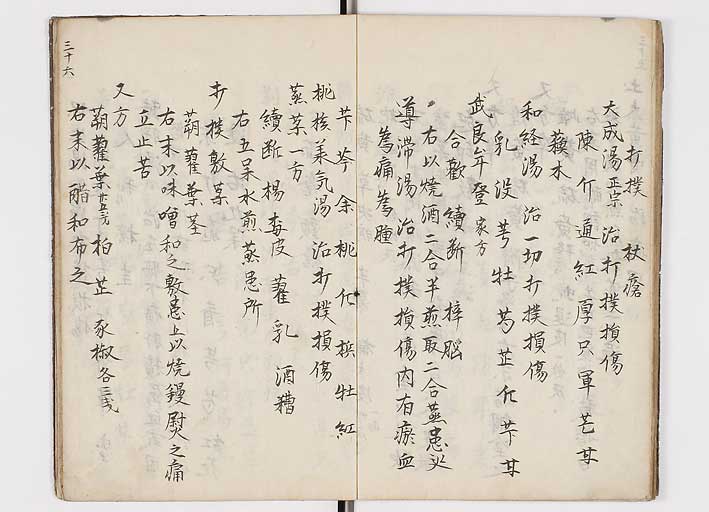 打撲　杖瘡
大成湯 正宗 治打撲損傷
陳介通紅厚只軍芒甘
蘓木
和経湯　治一切打撲損傷
乳没芎牡芍芷化芐甘
武良牟登 家方
合歓　續断　樟脳
右以焼酒二合半煎取二合蒸患処
導滞湯　治打撲損傷内有瘀血
為痛為腫
芐芩余桃化梹牡紅
桃核美気湯　治打撲損傷
蒸薬一方
續断　楊梅皮　藿　乳　酒糟
右五味水煎蒸患所
打撲敷薬
蒴藋葉茎
右末以味噌和之敷患上以焼鏝熨之痛
立止苦
又方
蒴藋葉 柏 芷 豕椒各三戔
右末以醋和布之
三十六